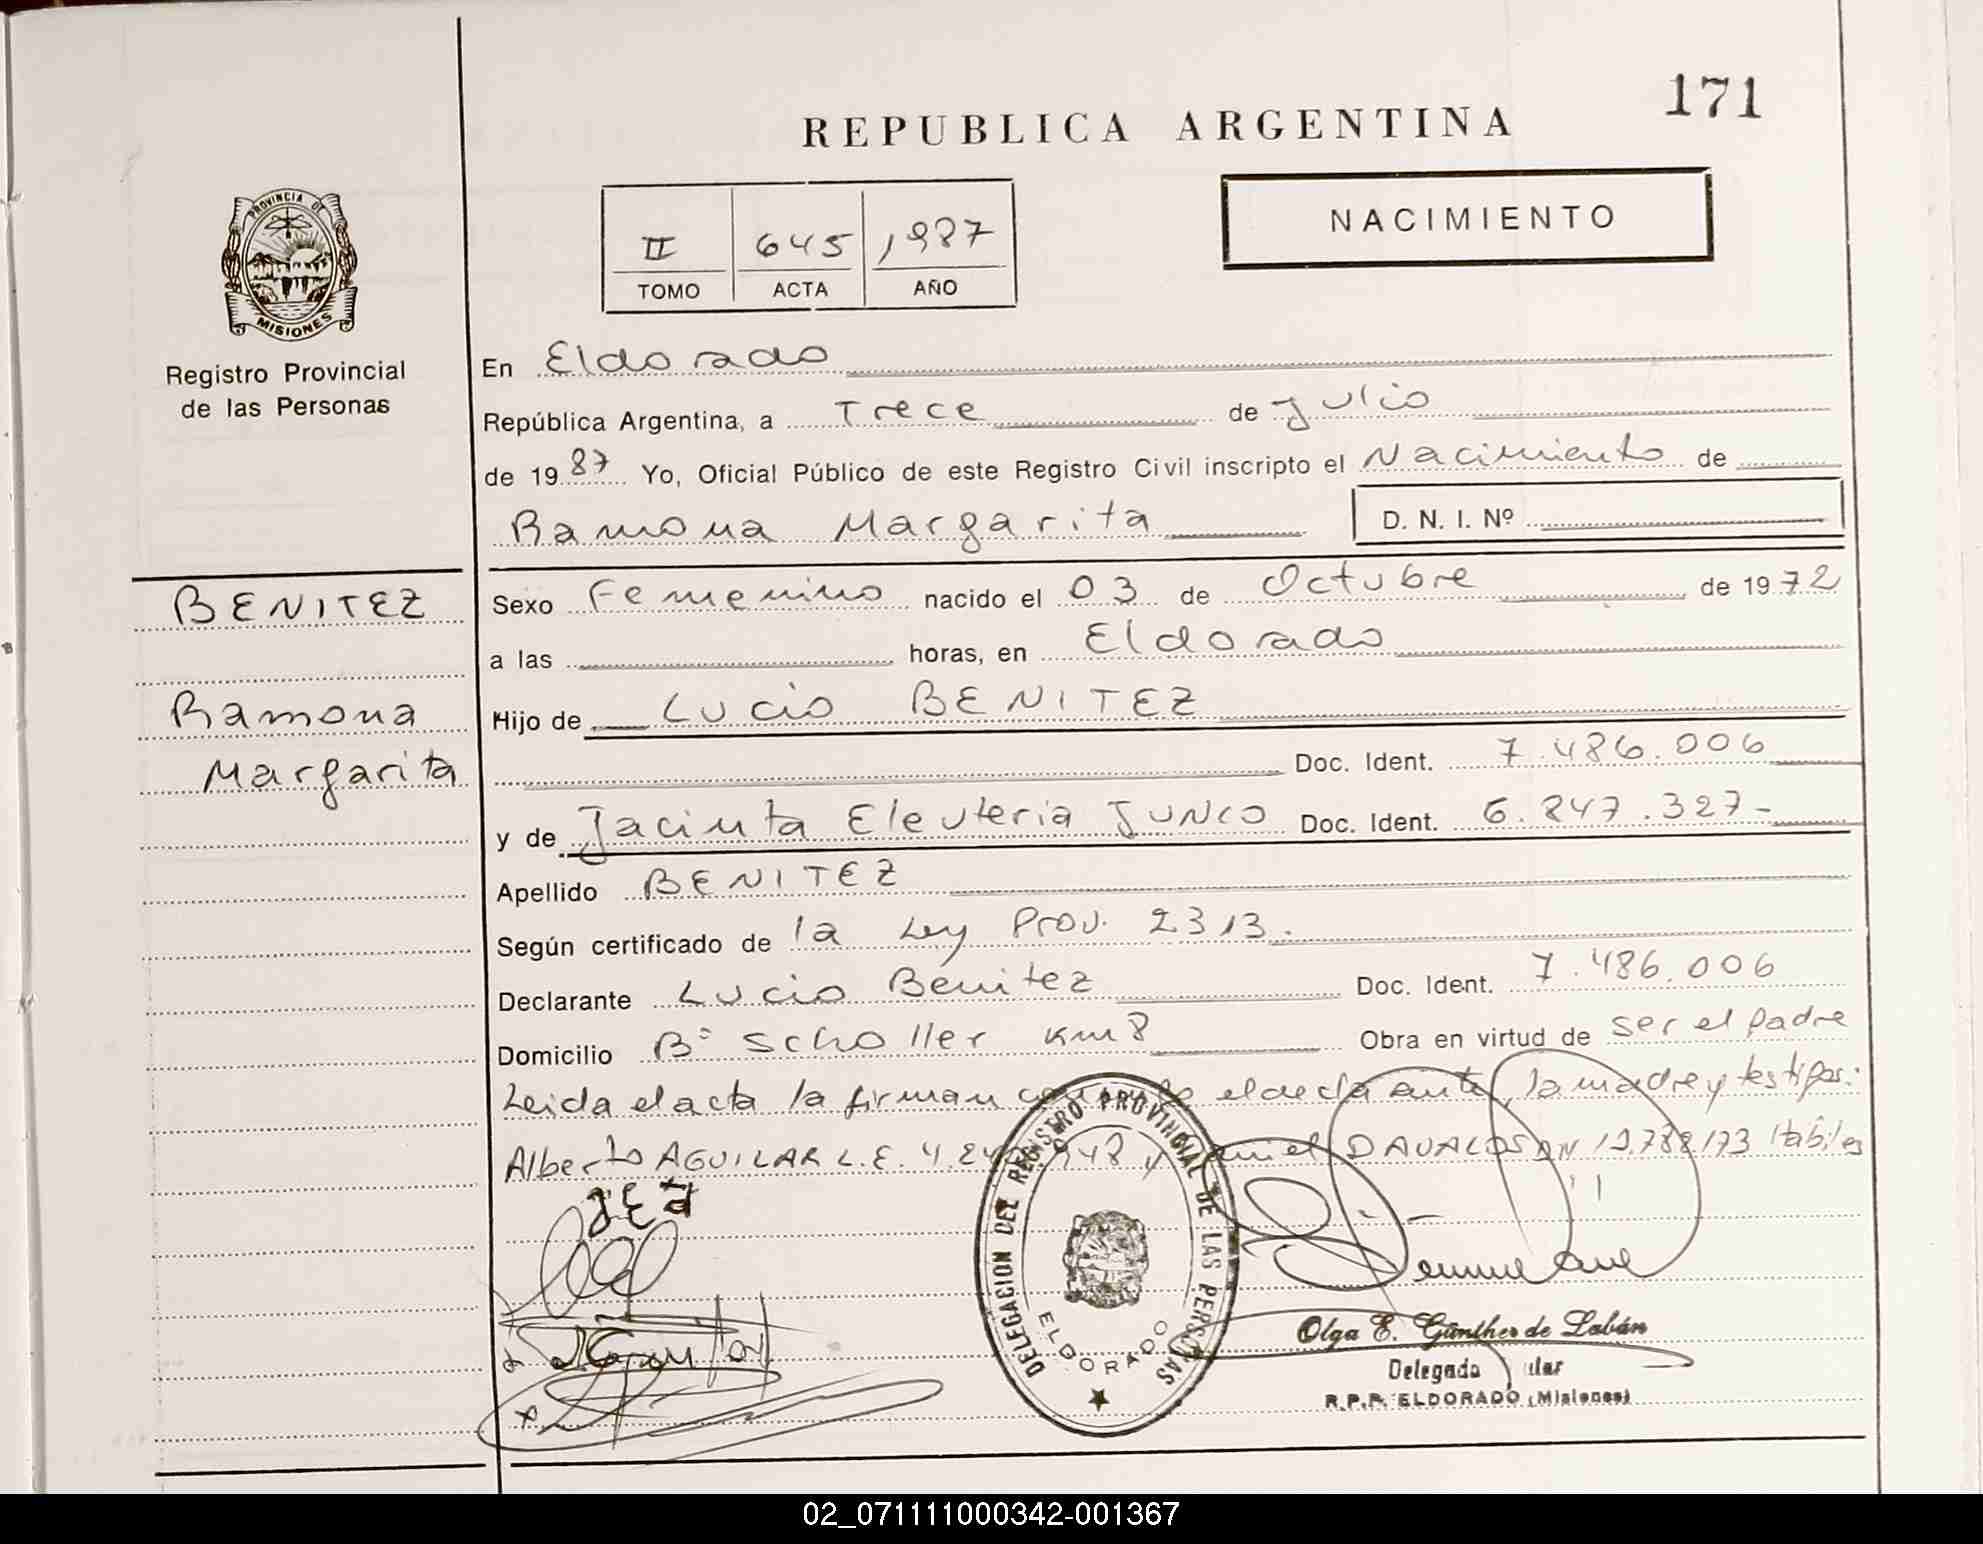 171
REPUBLICA ARGENTINA
NACIMIENTO
II 645 1987
TOMO ACTA AÑO
PROVINCIA DE
MISIONES
Registro Provincial
de las Personas
En Eldorado
República Argentina, a Trece de Julio
de 1987 Yo, Oficial Público de este Registro Civil inscripto el Nacimiento de
Ramona Margarita D. N. I. Nº
BENITEZ
Ramona
Margarita
Sexo Femenino nacido el 03 de Octubre de 1972
a las horas, en Eldorado
Hijo de Lucio BENITEZ
Doc. Ident. 7.486.006
y de Jacinta Eleuteria JUNCO Doc. Ident. 6.847.327-
Apellido BENITEZ
Según certificado de la Ley Prov. 2313.
Declarante Lucio Benitez Doc. Ident. 7.486.006
Domicilio Bº Scholler Km 8 Obra en virtud de ser el padre
Leida el acta la firman el declarante, la madre y testigos:
Alberto AGUILAR L.E. DAVALOS Habiles
DELEGACION DEL REGISTRO PROVINCIAL DE LAS PERSONAS
ELDORADO
Olga E. Günther de Labán
Delegada
R.P.P. ELDORADO (Misiones)
02_071111000342-001367